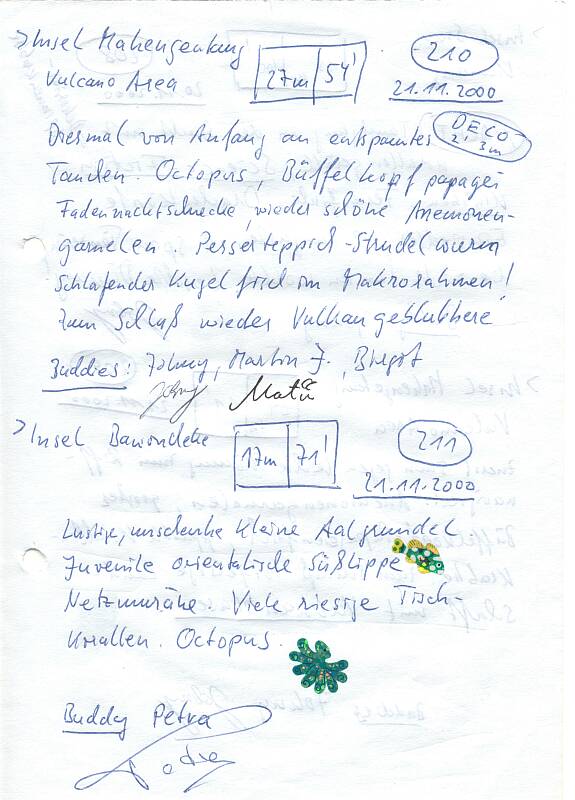 > Insel Mahengetang
27m 54'
210
Vulcano Area
21.11.2000
Diesmal von Anfang an entspanntes
DECO
2' 3m
Tauchen. Octopus, Büffelkopfpapagei
Fadennacktschnecke, wieder schöne Anemonen-
garnelen. Perserteppich-Strudelwurm
Schlafender Kugelfisch im Makrorahmen!
Zum Schluß wieder Vulkangeblubbere
Buddies: Johny, Martin J., Birgit
> Insel Bawondeke
17m 71'
211
21.11.2000
Lustige, kleine Aalgrundel
Juvenile orientalische Süßlippe
Netzmuräne. Viele riesige Tisch-
korallen. Octopus.
Buddy Petra
Petra